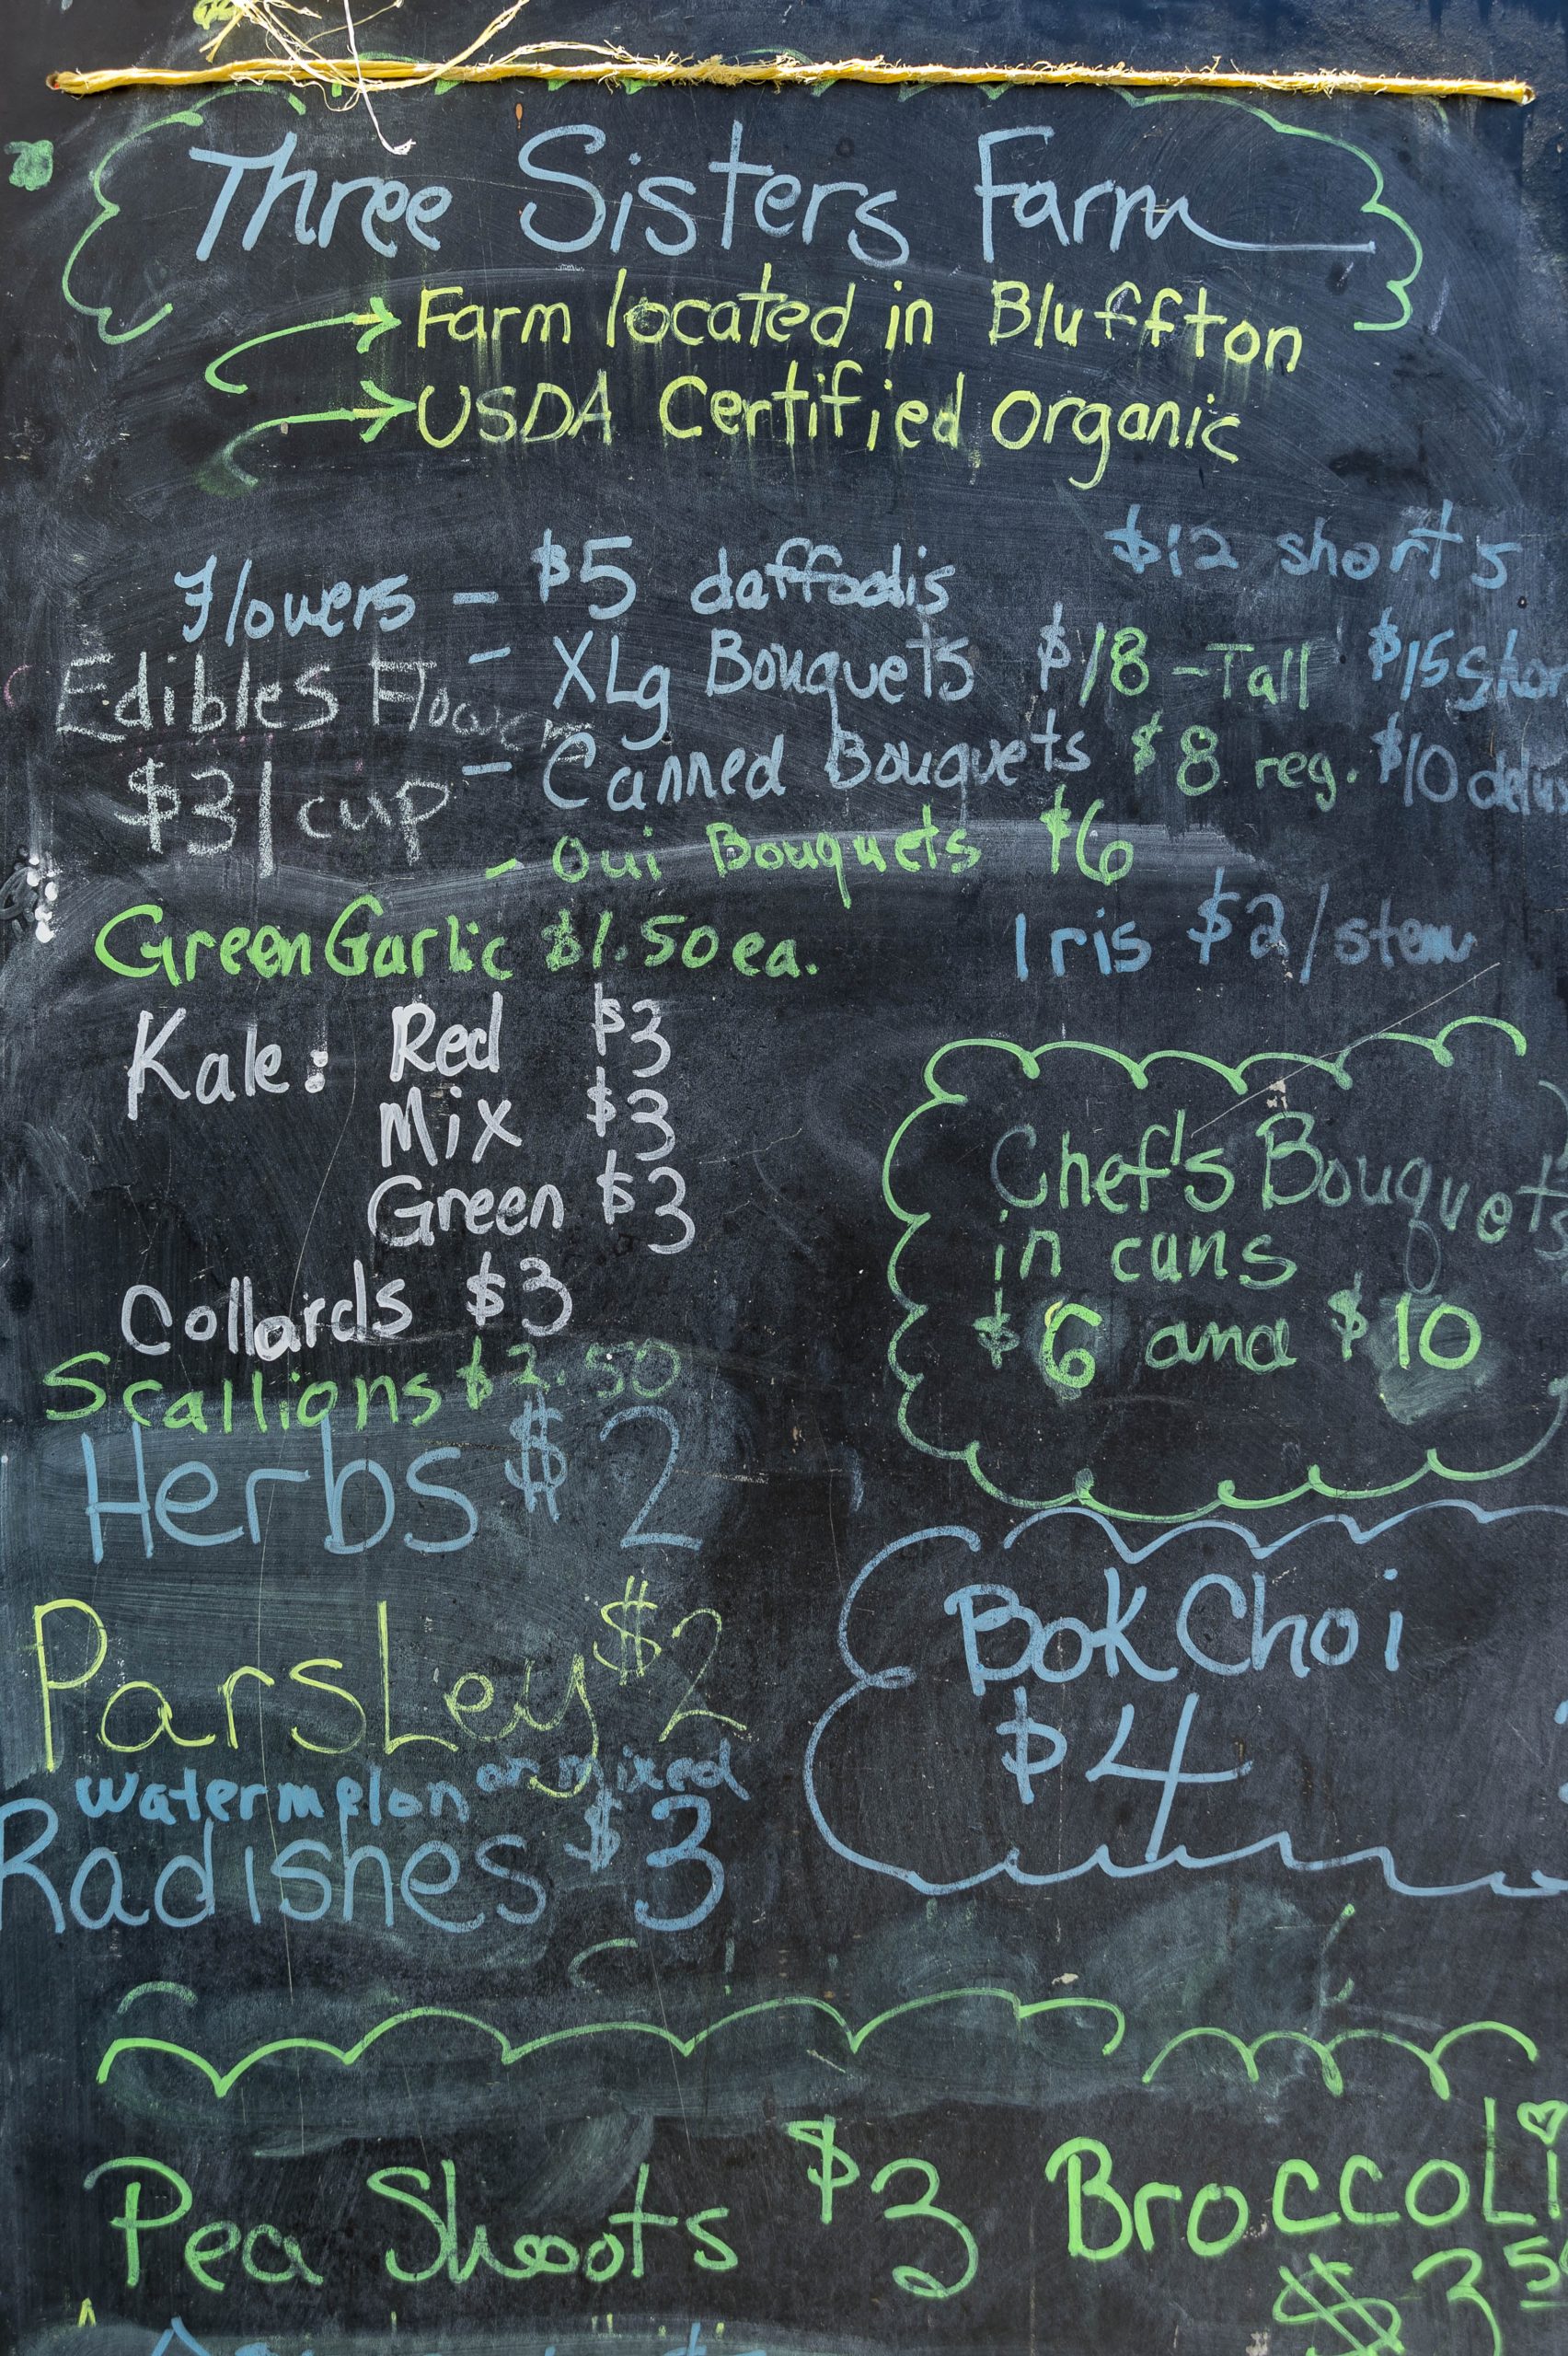 Three Sisters Farm
Farm located in Bluffton
USDA Certified Organic
$12 short's
Flowers - $5 daffodils
- XLg Bouquets $18 - Tall $15 Shor
Edibles Flowers
- Canned Bouquets $8 reg. $10 delu
$3/cup
- Oui Bouquets $6
Green Garlic $1.50 ea.
Iris $2/stem
Kale: Red $3
Mix $3
Green $3
Collards $3
Scallions $2.50
Herbs $2
Parsley $2
watermelon or mixed
Radishes $3
Chef's Bouquets
in cans
$6 and $10
Bok Choi
$4
Pea Shoots $3
Broccoli
$3.50